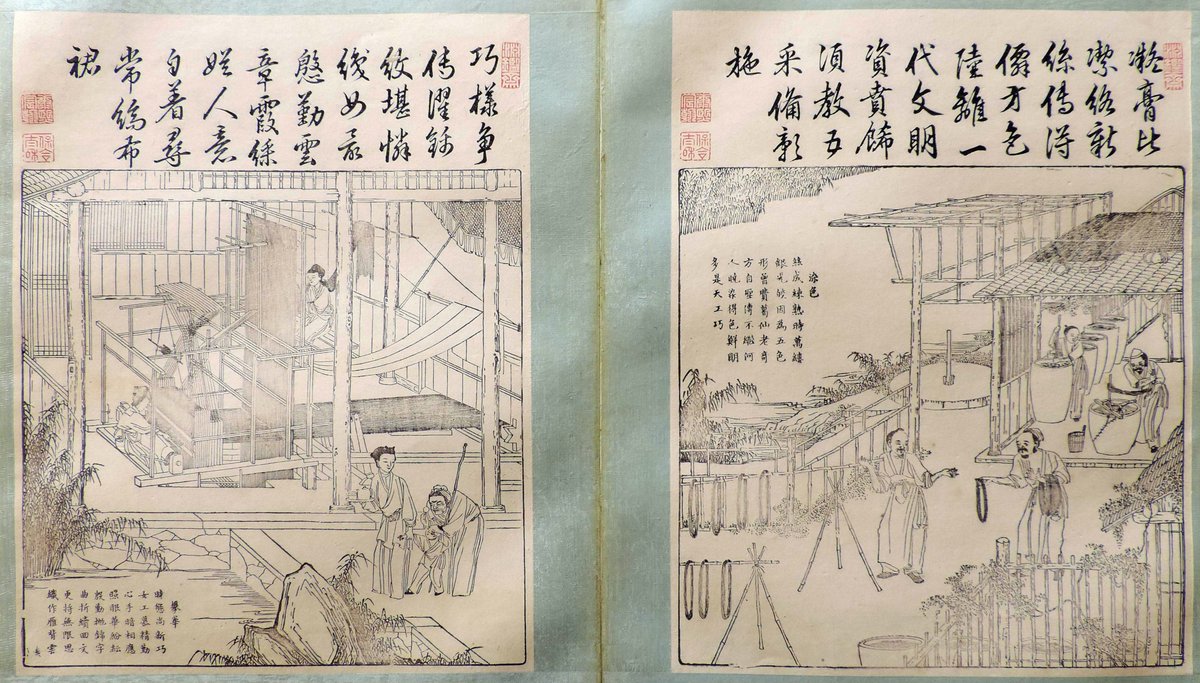 凝膏比
潔絡新
絲傳得
僊方色
陸離一
代文明
資賁餙
須教五
采備彰
施
染色
絲成練熟時萬縷
銀光皎因為五色
形曾費葛仙老奇
方自聖傳不
人曉染得色鮮明
多是天工巧
巧樣爭
傳濯錦
紋堪憐
織女最
慇勤雲
章霞綵
娛人意
自著尋
常縞布
裙
攀華
時態尚新巧
女工慕精勤
心手暗相應
照眼華紛紜
殷勤挑錦字
曲折續回文
更持無限思
織作雁背雲